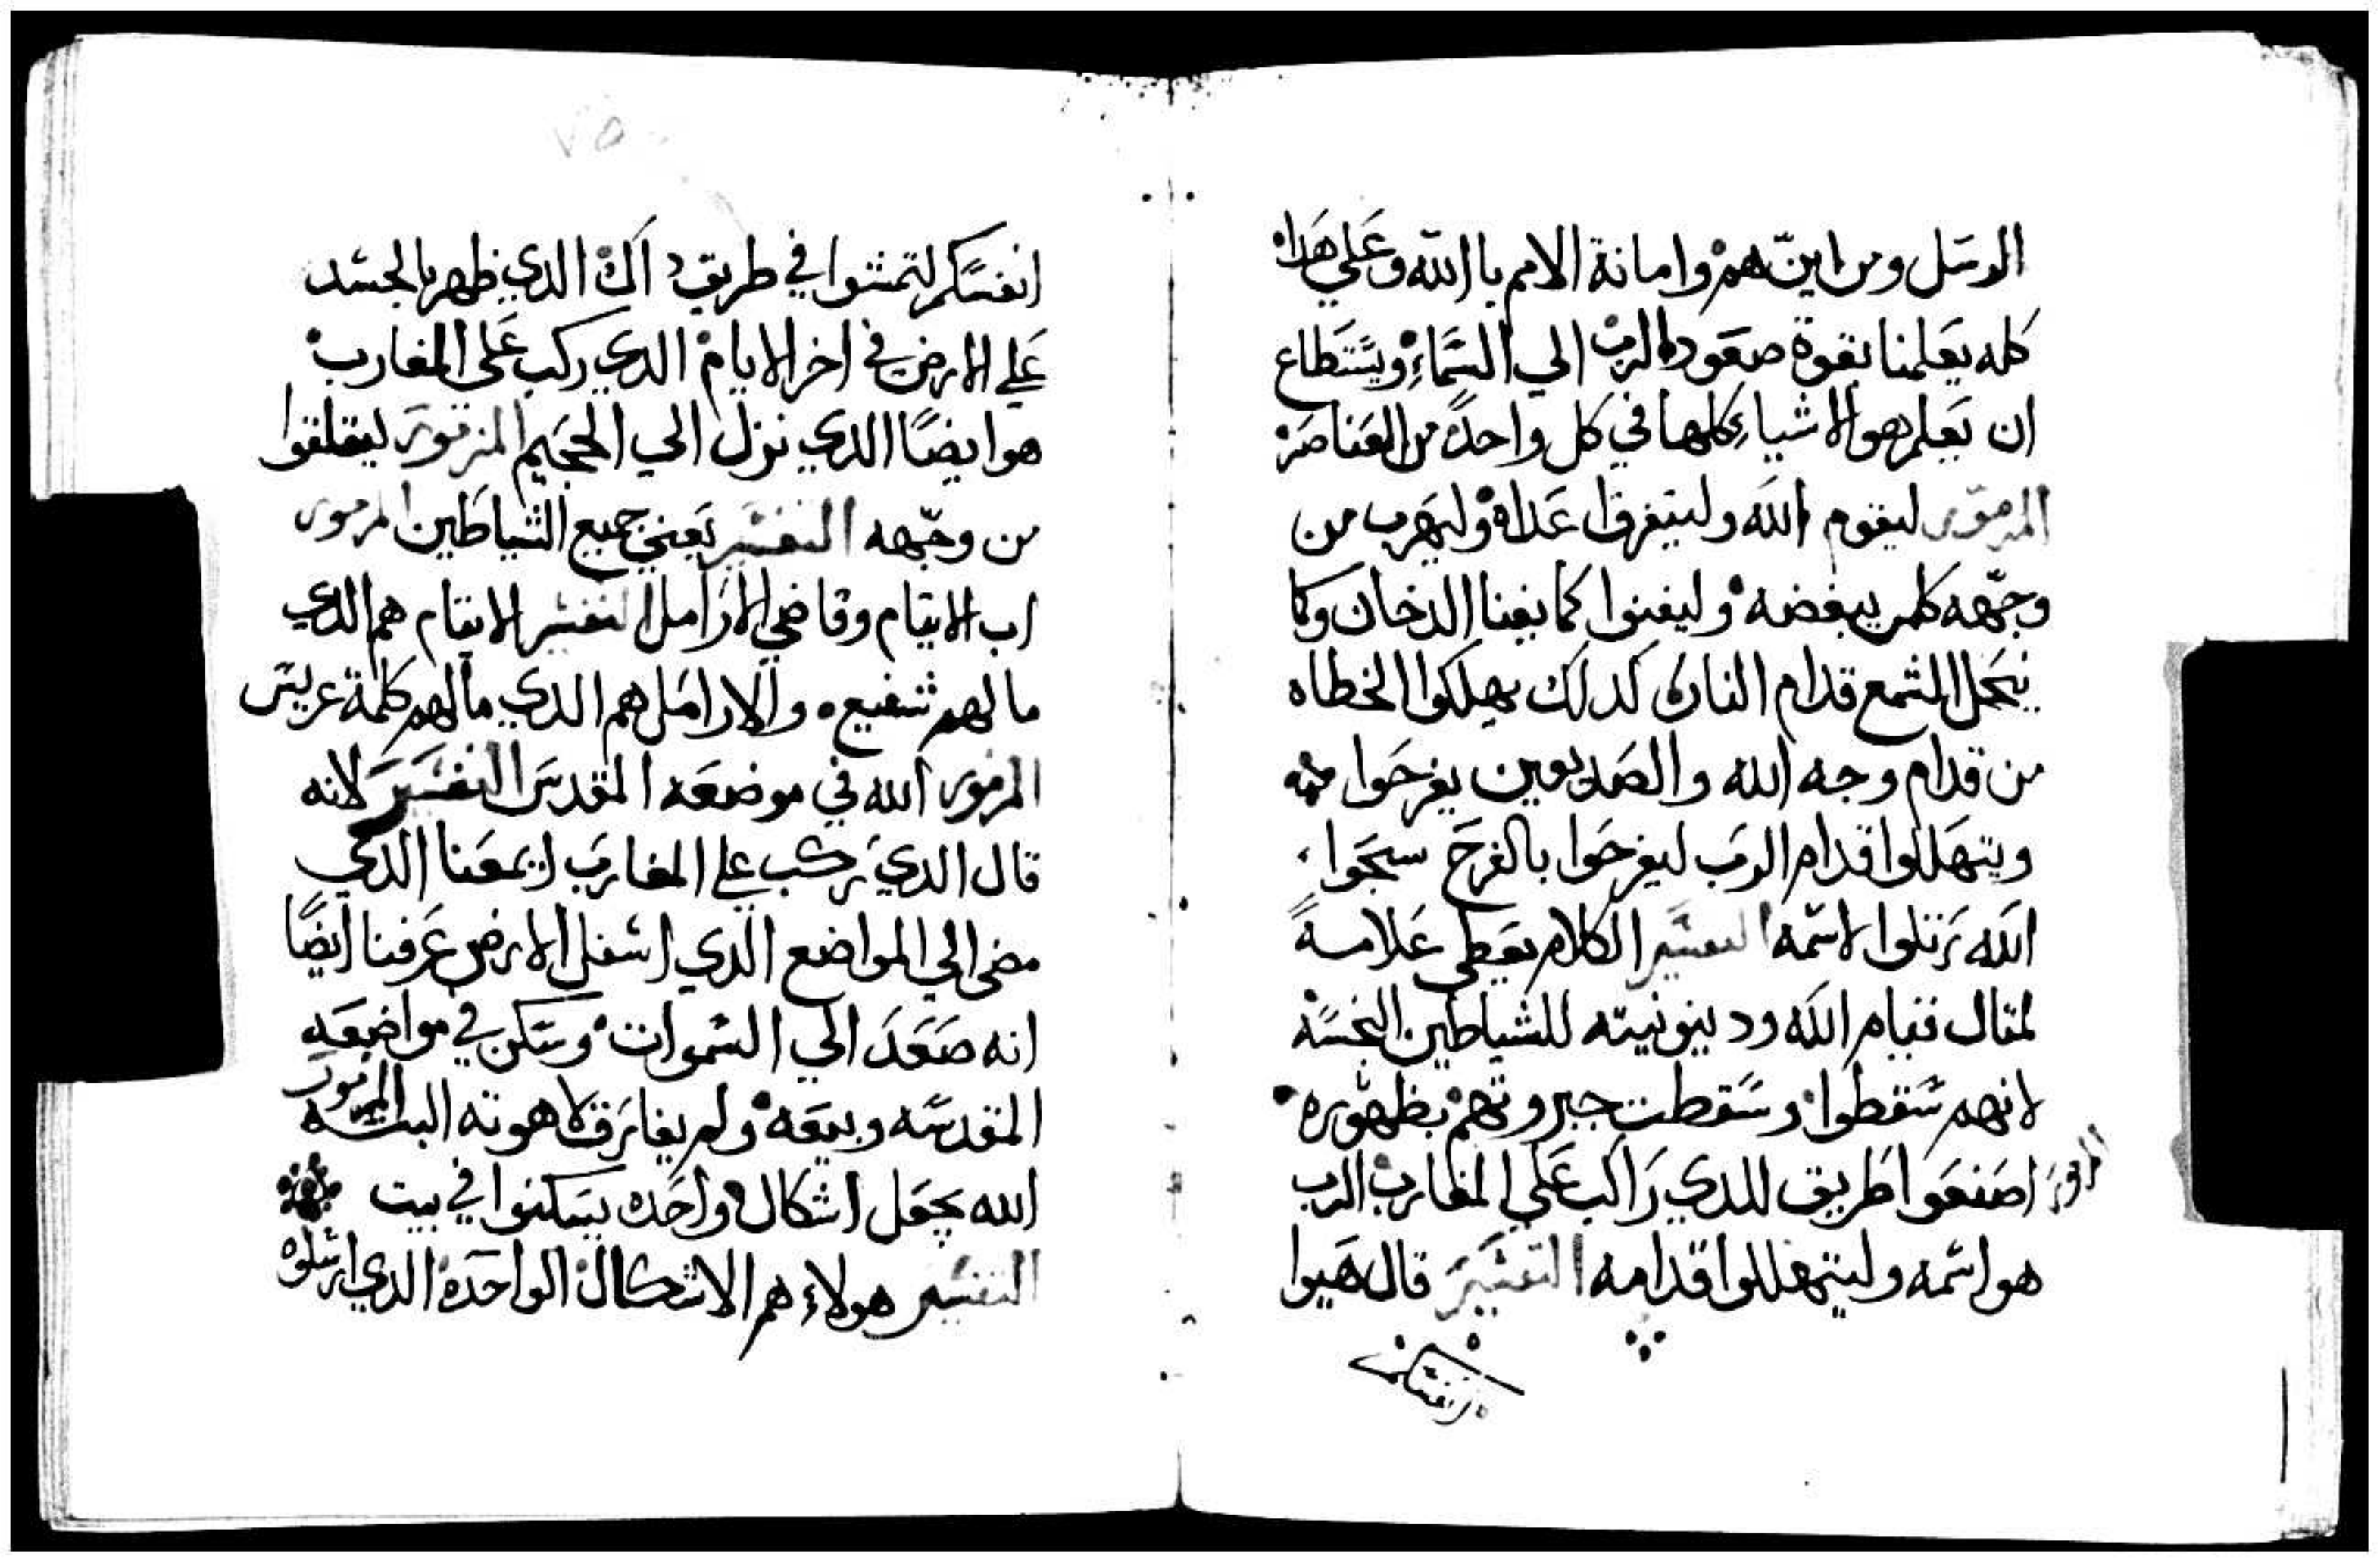 الرسل ومن اين هم وامانة الامم باالله وعلي هداه
كله يعلمنا بقوة صعود الرب الي السماء ويستطاع
ان يعلم هو الاشياء كلها في كل واحده من العناصر
المزمور ليقوم الله وليتفرق اعداه وليهرب من
وجهه كلمن يبغضه وليفنوا كما يفنا الدخان وكما
ينحل الشمع قدام النار كدلك يهلكوا الخطاه
من قدام وجه الله والصديقين يفرحوا
ويتهللوا قدام الرب ليفرحوا بالفرح سبحوا
الله رتلوا لاسمه التفسير الكلام يعطي علامة
لمتال قيام الله ودينونيته للشياطين النجسه
لانهم سقطوا وسقطت جبروتهم بظهوره
المزمور اصنعوا طريق للدي راكب علي المغارب الرب
هو اسمه وليتهللوا قدامه التفسير قال هيوا
انفسكم
٧٥
انفسكم لتمشوا في طريق داك الدي ظهر بالجسد
علي الارض في اخر الايام الدي ركب علي المغارب
هو ايضا الدي نزل الي الجحيم المزمور ليقلقوا
من وجهه التفسير يعني جميع الشياطين المزمور
اب الايتام وقاضي الارامل التفسير الايتام هم الدي
ما لهم شفيع والارامل هم الدي ما لهم كلمة عريس
المزمور الله في موضعه المقدس التفسير لانه
قال الدي ركب علي المغارب ايمعنا الدي
مضي الي المواضع الدي اسفل الارض عرفنا ايضا
انه صعد الي السموات وسكن في مواضعه
المقدسه وبيعه ولم يفارق لاهوته البته المزمور
الله يجعل اشكال واحده يسكنوا في بيت
التفسير هولاء هم الاشكال الواحده الدي ارسلوه